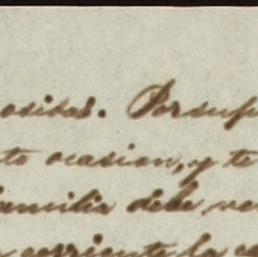 ositos. Porsup
to ocasion, y te
familia debe ve
corriente la